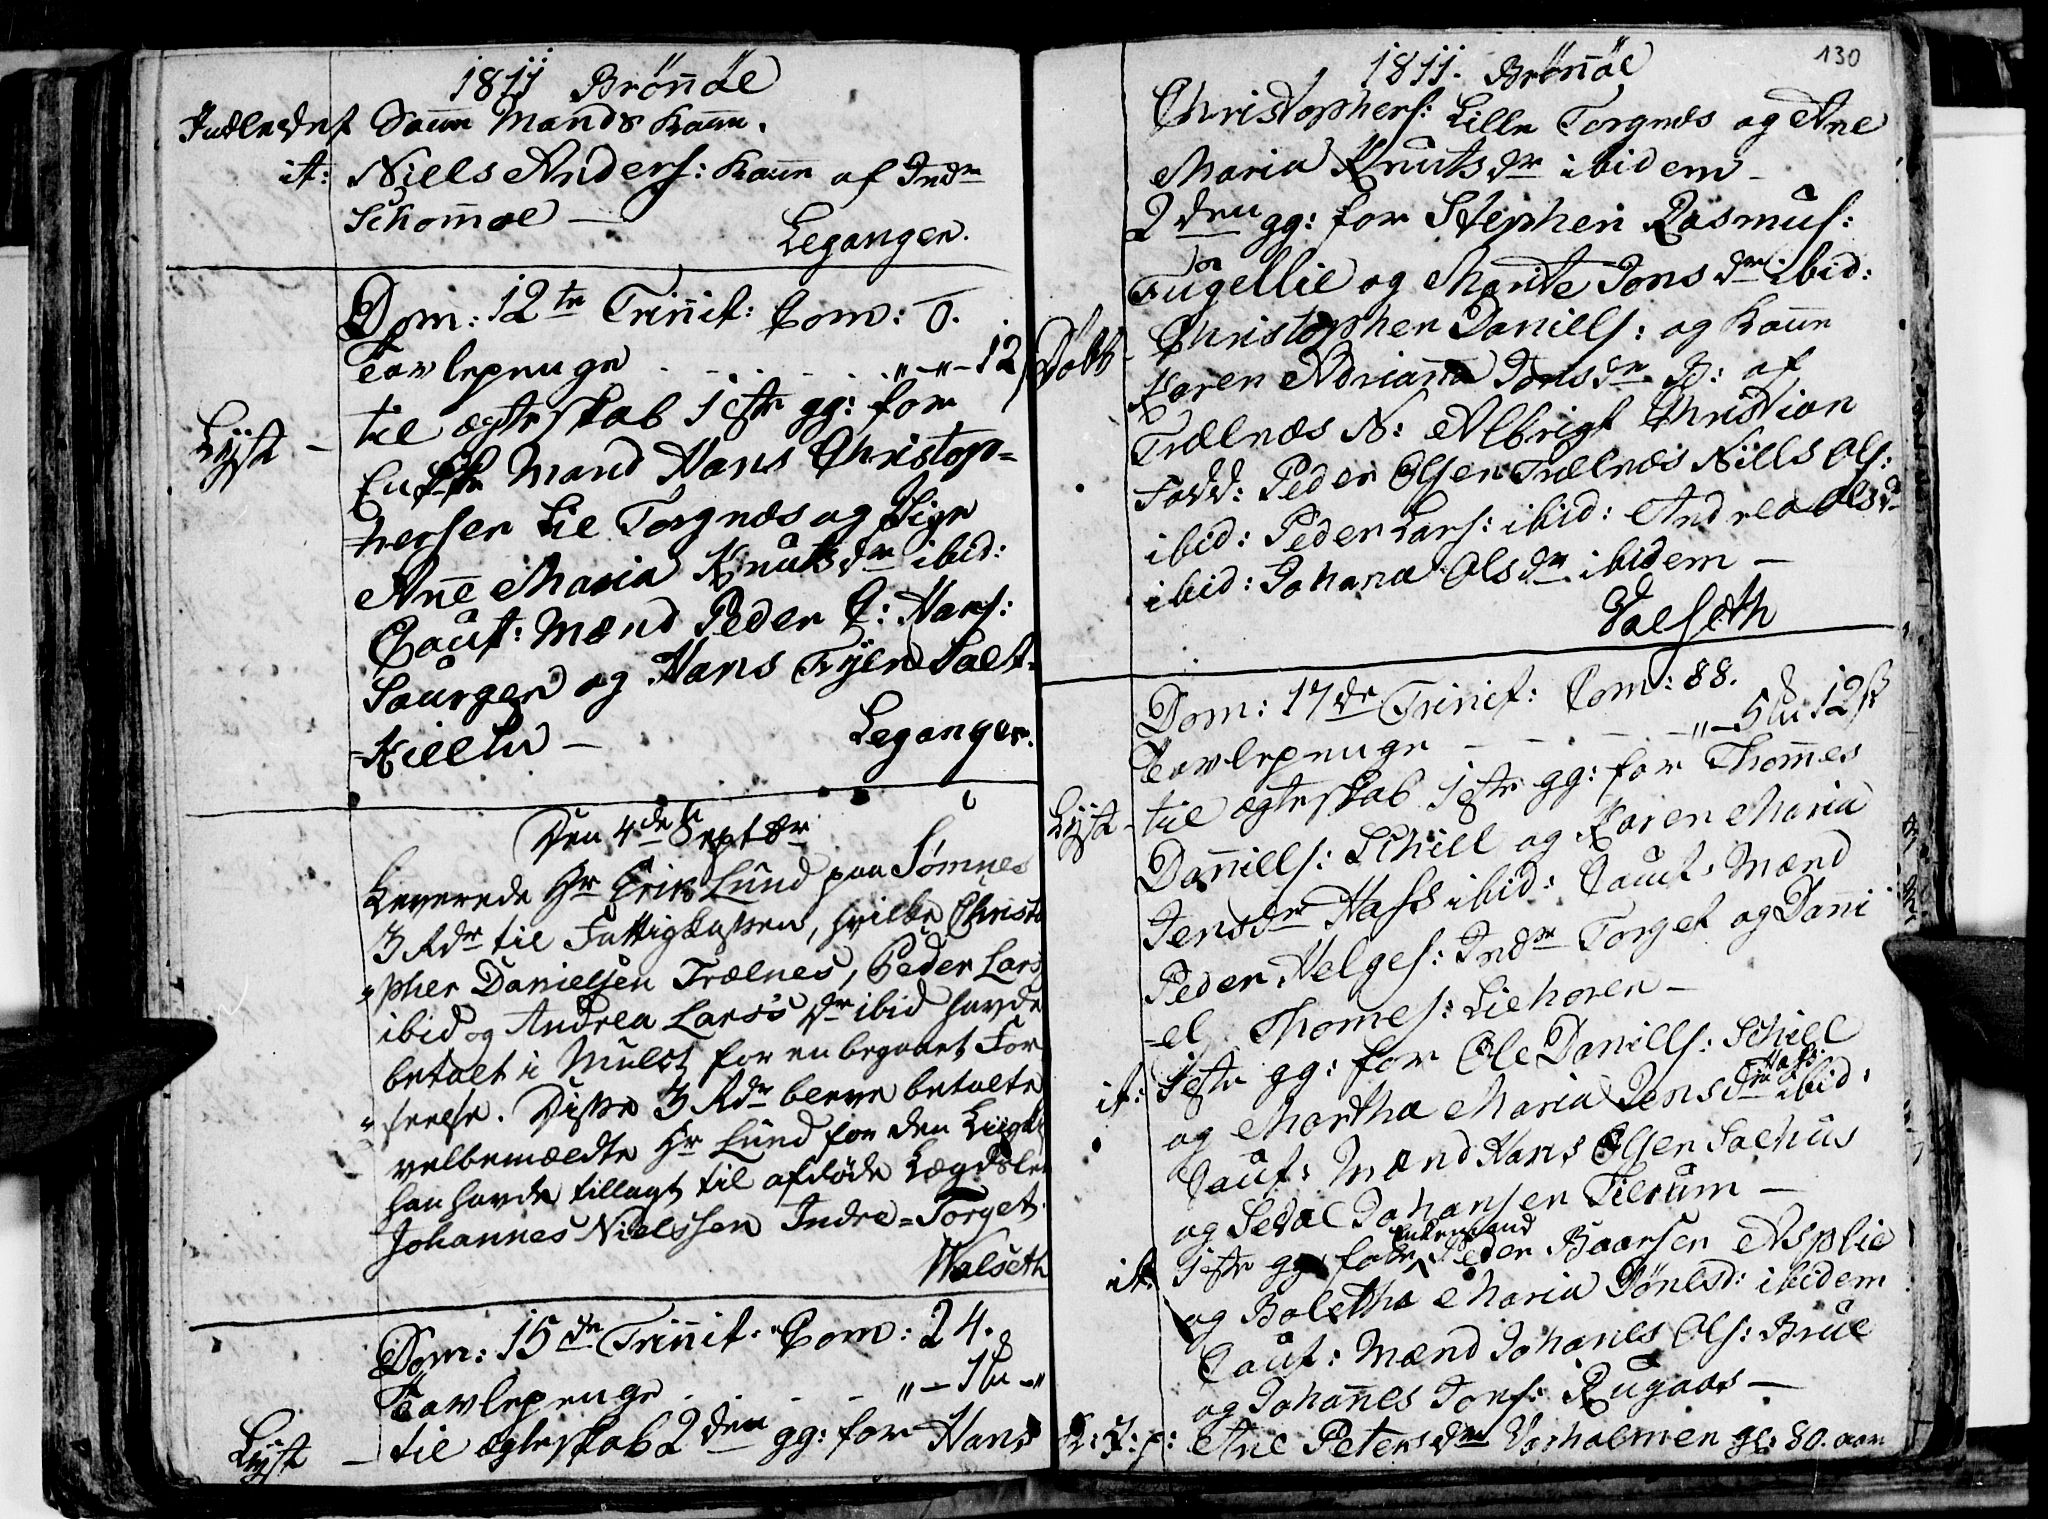 1811 Brönöe
Indledet Samme Mands Kone.
it: Niels Anders: Kone af Indre
Schomoe —
Leganger.
Dom: 12te Trinit: Com: 0.
Tavlepenge - - - „-„-12
Lyst – til ægteskab 1ste gg: for
Enke Mand Hans Christop=
hersen Lie Torgnes og Pige
Ane Maria Knutsdr ibid:
Caut: Mænd Peder C: Hans:
Saurgen og Hans Tyen Salt-
-Kielen —
Leganger.
Den 4de Septbr
Leverede Hr Erik Lund paa Sømnes
3 Rdr til Fattigkassen, hvilke Christo
=pher Danielsen Trælnes, Peder Lars
ibid og Andrea Larsdr ibid havde
betalt i Mulct for en begaaet For
=seelse. Disse 3 Rdr bleve betalte
velbemældte Hr Lund for den Liig
han havde tillagt til afdöde Lægdsle
Johannes Nielssen Indre=Torget.
Walseth
Dom: 15de Trinit: Com: 24.
Tavlepenge - - - „-1 -„
Lyst – til ægteskab 2den gg: for Hans
130
1811. Brönöe
Christophers: Lille Torgnes og Ane
Maria Knutsdr ibidem –
2den gg: for Stephen Rasmus:
Fugellie og Marite Jonsdr ibid:
Döbt – Christopher Daniels: og Kone
Karen Adriana Jonsdr B: af
Trælnæs N: Albrigt Christian
Fadd: Peder Olsen Trælnæs Niels Ols:
ibid: Peder Lars: ibid: Andrea Olsdr
ibid: Johana Olsdr ibidem —
Valseth
Dom: 17de Trinit: Com: 88.
Tavlepenge - - - „-5 12ß
Lyst – til ægteskab 1ste gg: for Thomes
Daniells: Schiell og Karen Maria
Jensdr Hafs ibid: Caut: Mænd
Peder Helges: Indre Torget og Dani
-el Thomes: Liehoren –
it: 1ste gg: for Ole Daniells: Schiell
og Martha Maria Jensdr Hafs: ibid:
Caut: Mænd Hans Olsen Salhus
og Sedal Johansen Tilrum —
it: 1ste gg: for Enkemand Peder Baarsen Asplie
og Bolethe Maria Jönsd: ibidem
Caut: Mænd Johanes Ols: Brue
og Johannes Jons: Rugaas —
L: J: p: Ane Petersdr Vasholmen gl: 80. aar